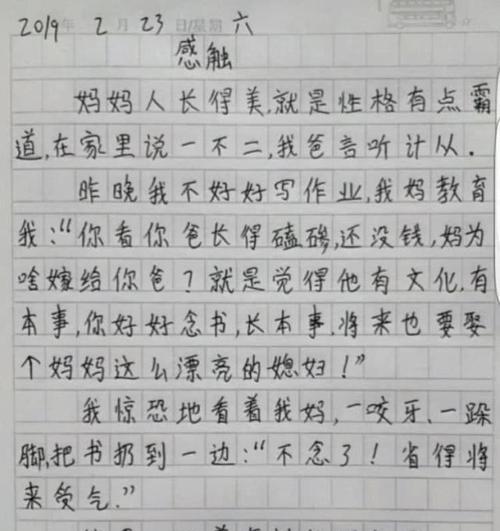 2019年 2月 23日/星期 六
感触
妈妈人长得美,就是性格有点霸
道,在家里说一不二,我爸言听计从.
昨晚我不好好写作业,我妈教育
我:“你看你爸长得磕碜,还没钱,妈为
啥嫁给你爸?就是觉得他有文化,有
本事,你好好念书,长本事,将来也要娶
个妈妈这么漂亮的媳妇!”
我惊恐地看着我妈,一咬牙、一跺
脚,把书扔到一边:“不念了!省得将
来受气.”